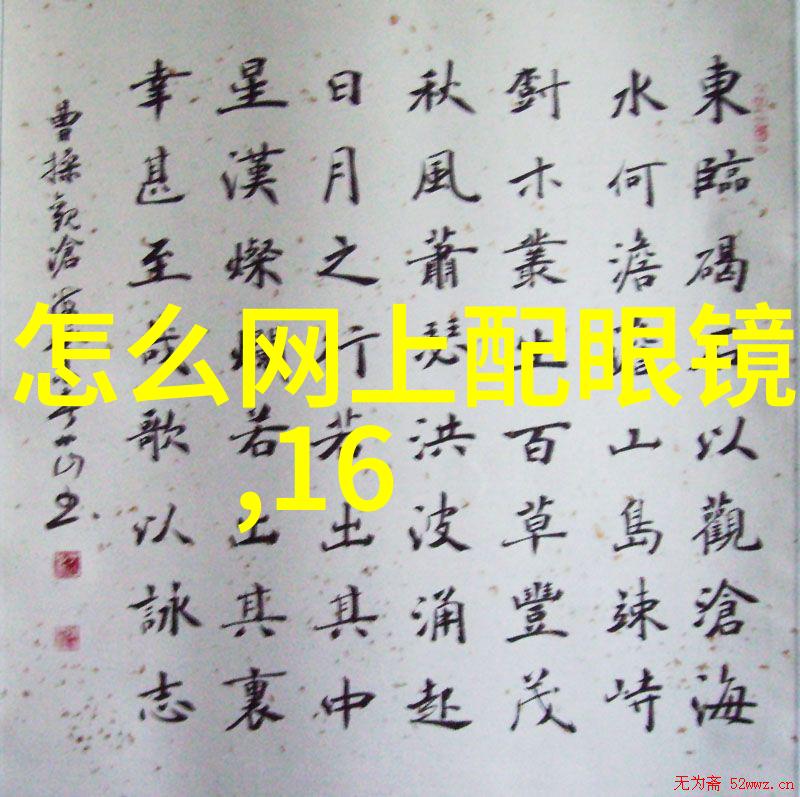 東臨碣石以觀滄海
水何澹澹山島竦峙
樹木叢生百草豐茂
秋風蕭瑟洪波涌起
日月之行若出其中
星漢燦爛若出其裏
幸甚至哉歌以詠志
曹操觀滄海
怎么网上配眼镜
,16
无为斋 52wwz.cn